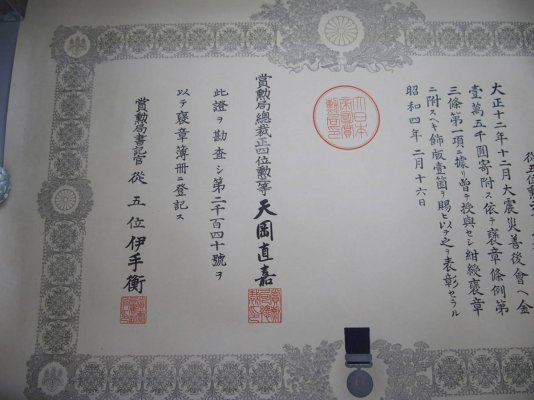 從五位勲
大正十二年十二月大震災善後會ヘ金
壹萬五千圓寄附ス依テ褒章條例第
三條第一項ニ據リ曽テ授與セシ紺綬褒章
ニ附スヘキ飾版壹箇ヲ賜ヒ以テ之ヲ表彰セラル
昭和四年二月十六日
大日本
帝國賞
勲局印
賞勲局總裁正四位勲等天岡直嘉
此證ヲ勘查シ第二千百四十號ヲ
以テ褒章簿冊ニ登記ス
賞勲局書記官從五位伊手衡